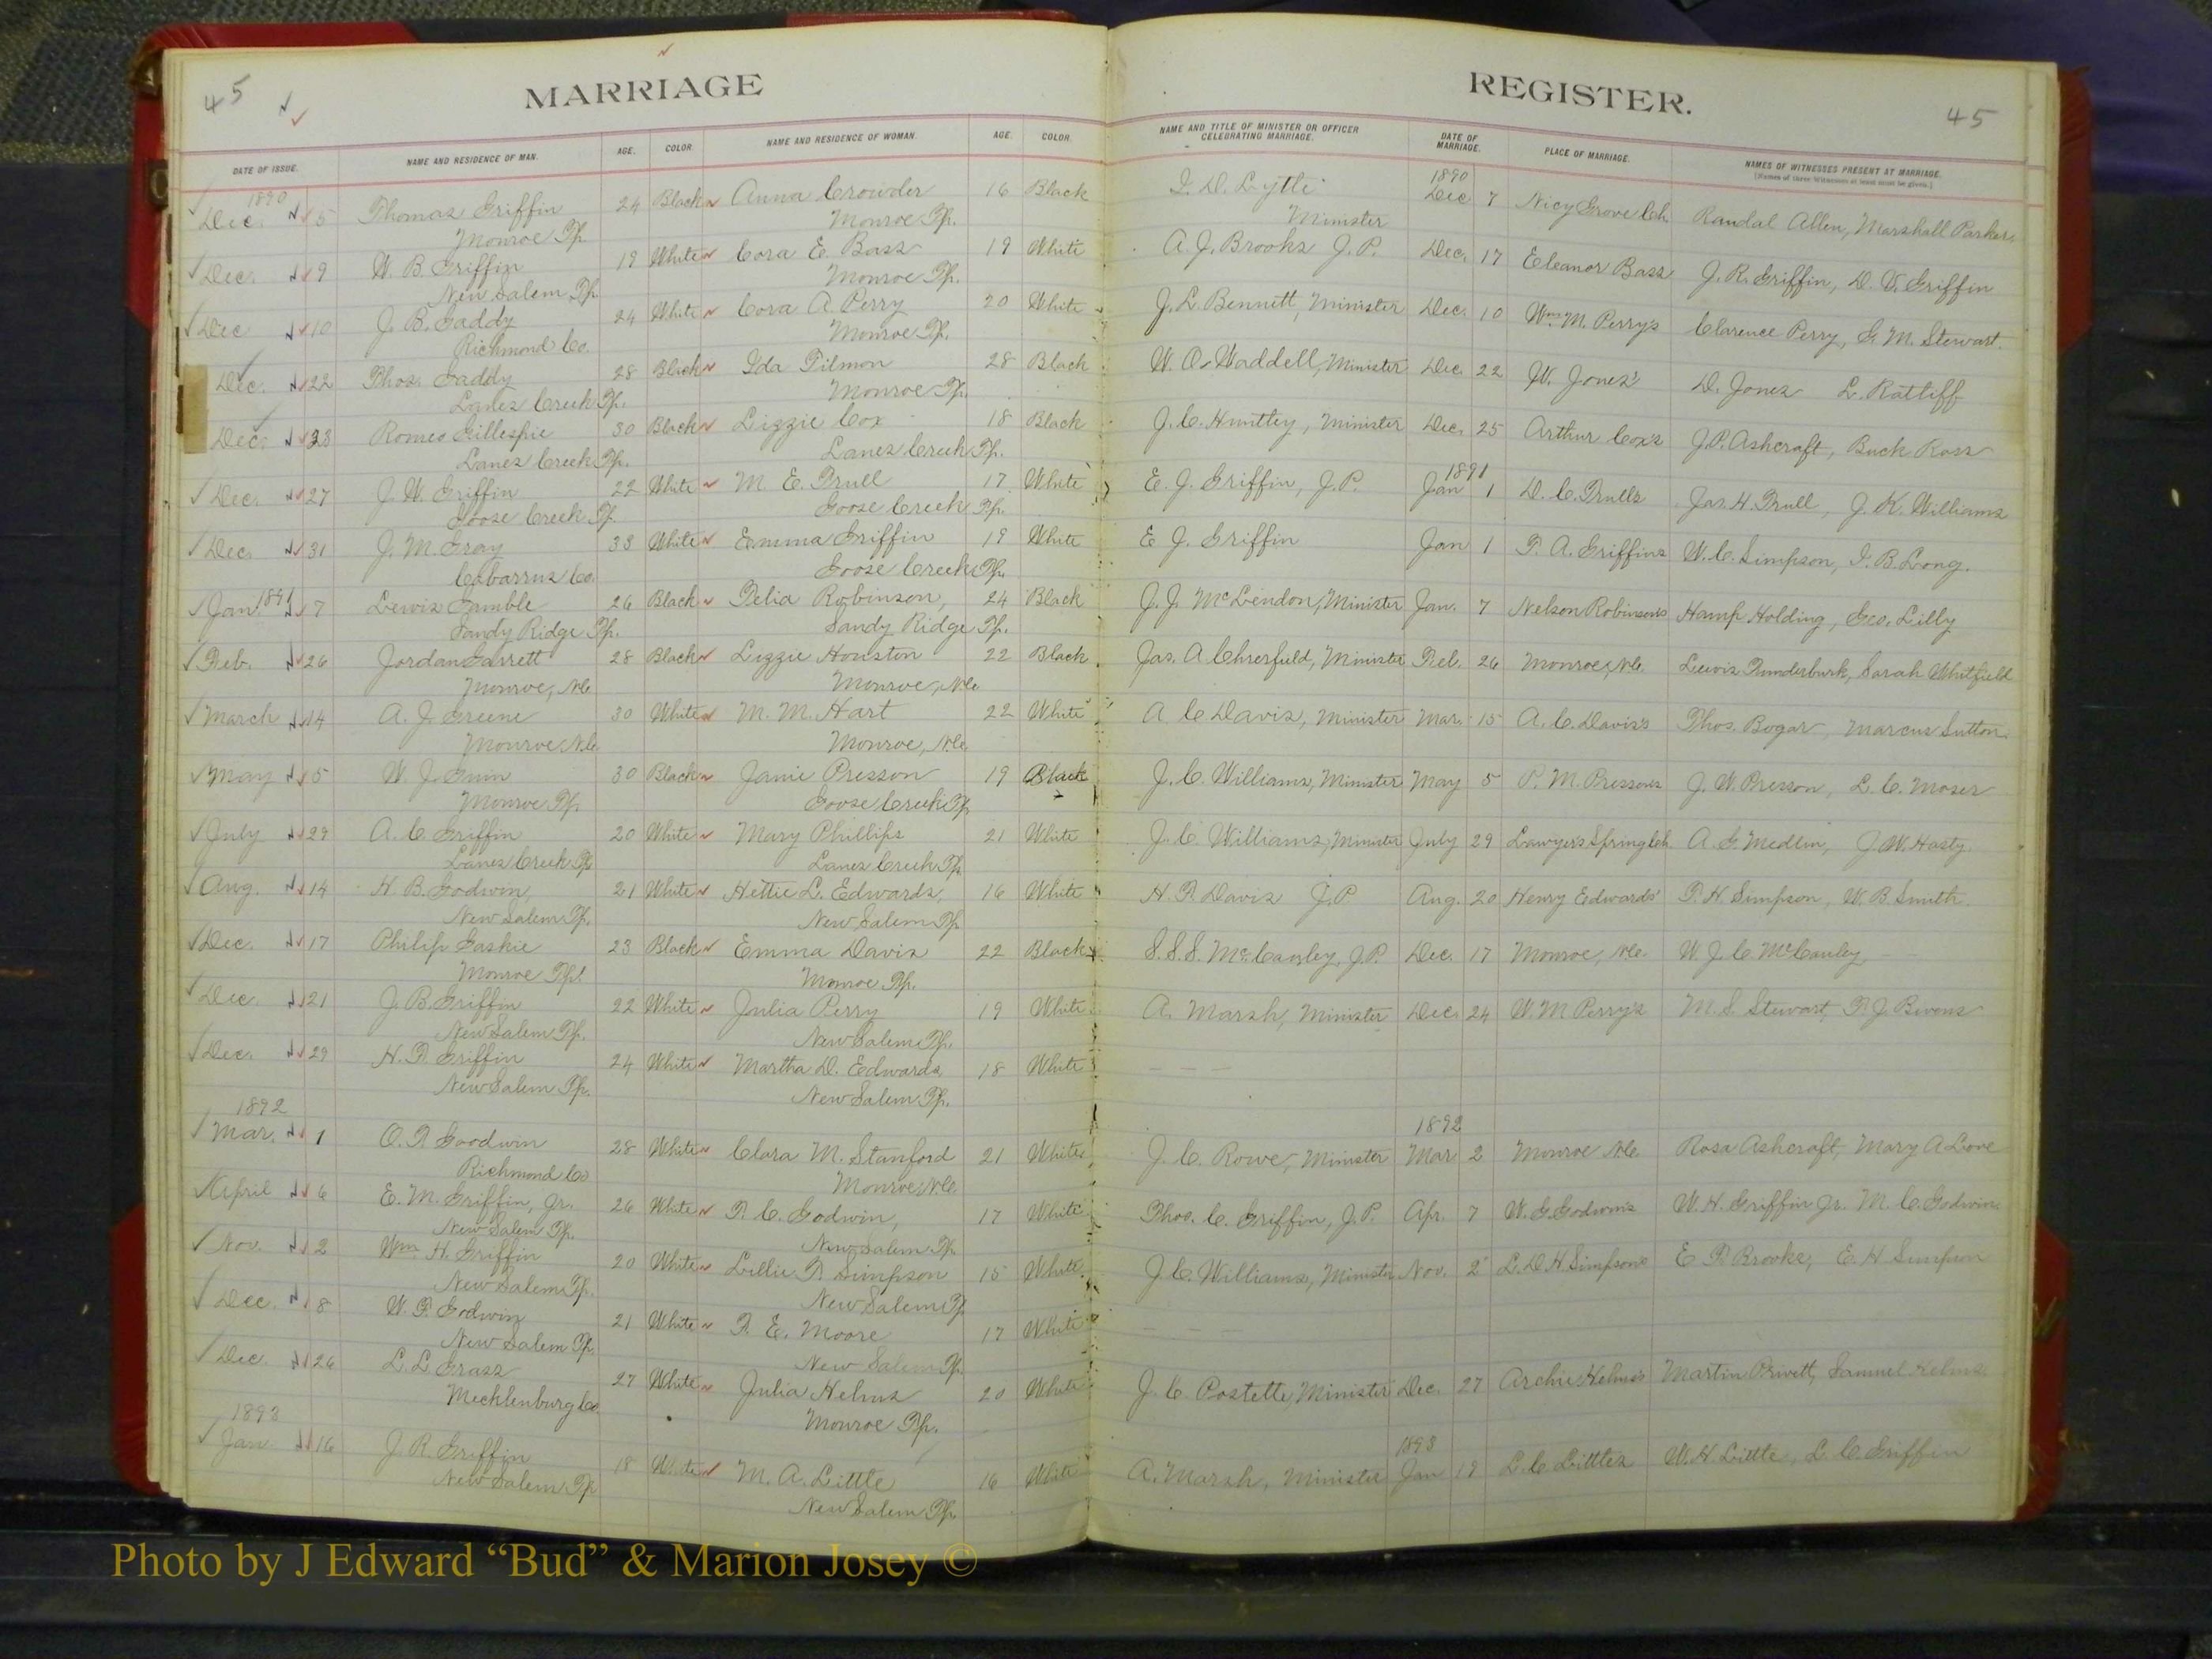 45
MARRIAGE
REGISTER.
45
DATE OF ISSUE. NAME AND RESIDENCE OF MAN. AGE. COLOR NAME AND RESIDENCE OF WOMAN. AGE. COLOR. NAME AND TITLE OF MINISTER OR OFFICER CELEBRATING MARRIAGE. DATE OF MARRIAGE. PLACE OF MARRIAGE. NAMES OF WITNESSES PRESENT AT MARRIAGE.
[Names of three Witnesses at least must be given.]
1890 1890
Dec. 5 Thomas Griffin 24 Black Anna Crowder 16 Black I. D. Lytle Dec 7 Nicy Grove Ch. Randal Allen, Marshall Parker,
Monroe Tp. Monroe Tp. Minister
Dec. 9 W. B. Griffin 19 White Cora E. Bass 19 White A. J. Brooks J. P. Dec. 17 Eleanor Bass J. R. Griffin, D. V. Griffin
New Salem Tp. Monroe Tp.
Dec 10 J. B. Gaddy 24 White Cora A. Perry 20 White J. L. Bennett, Minister Dec. 10 Wm. M. Perry's Clarence Perry, G. M. Stewart.
Richmond Co. Monroe Tp.
Dec. 22 Thos. Gaddy 28 Black Ida Tilmon 28 Black W. O. Waddell, Minister Dec. 22 W. Jones' D. Jones L. Ratliff
Lanes Creek Tp. Monroe Tp.
Dec. 23 Romeo Gillespie 30 Black Lizzie Cox 18 Black J. C. Huntley, Minister Dec. 25 Arthur Cox's J. P. Ashcraft, Buck Ross
Lanes Creek Tp. Lanes Creek Tp.
1891
Dec. 27 J. W. Griffin 22 White M. E. Trull 17 White E. J. Griffin, J. P. Jan 1 D. C. Trulls Jas. H. Trull, J. K. Williams
Goose Creek Tp. Goose Creek Tp.
Dec. 31 J. M. Gray 33 White Emma Griffin 19 White E J. Griffin Jan 1 T. A. Griffins W. C. Simpson, I. B. Long.
Cabarrus Co. Goose Creek Tp.
1891
Jan. 7 Lewis Gamble 26 Black Telia Robinson, 24 Black J. J. McLendon, Minister Jan. 7 Nelson Robinson's Hamp Holding, Geo. Lilly
Sandy Ridge Tp. Sandy Ridge Tp.
Feb. 26 Jordan Garrett 28 Black Lizzie Houston 22 Black Jas. A Chrerfield, Minister Feb. 26 Monroe, N.C. Lewis Funderburk, Sarah Whitfield
Monroe, N.C. Monroe, N.C.
March 14 A. J. Greene 30 White M. M. Hart 22 White A C Davis, Minister Mar. 15 A. C. Davis's Thos. Bogar, Marcus Sutton.
Monroe, N.C. Monroe, N.C.
May 5 W. J. Guin 30 Black Janie Presson 19 Black J. C. Williams, Minister May 5 P. M. Presson's J. W. Presson, L. C. Moser
Monroe Tp. Goose Creek Tp.
July 29 A. C. Griffin 20 White Mary Phillips 21 White J. C. Williams, Minister July 29 Lawyers Spring Ch. A. G. Medlin, J. W. Hasty.
Lanes Creek Tp. Lanes Creek Tp.
Aug. 14 H. B. Godwin, 21 White Hettie L. Edwards, 16 White H. T. Davis J. P Aug. 20 Henry Edwards' T. H. Simpson, W. B. Smith.
New Salem Tp. New Salem Tp.
Dec. 17 Philip Gaskie 23 Black Emma Davis 22 Black S. S. S. McCauley, J. P. Dec. 17 Monroe, N.C. W. J. C. McCauley
Monroe Tp. Monroe Tp.
Dec. 21 J. B. Griffin 22 White Julia Perry 19 White A. Marsh, Minister Dec. 24 W. M Perry's M. S. Stewart, T. J. Bivens
New Salem Tp. New Salem Tp.
Dec. 29 H. T. Griffin 24 White Martha D. Edwards, 18 White – – –
New Salem Tp. New Salem Tp.
1892 1892
Mar. 1 O. T. Goodwin 28 White Clara M. Stanford 21 White J. C. Rowe, Minister Mar 2 Monroe N.C. Rosa Ashcraft, Mary A Love
Richmond Co Monroe, N.C.
April 6 E. M. Griffin, Jr. 26 White T. C. Godwin, 17 White Thos. C. Griffin, J. P. Apr. 7 W. G. Godwin's W. H. Griffin Jr. M. C. Godwin
New Salem Tp. New Salem Tp.
Nov. 2 Wm. H. Griffin 20 White Lillie T. Simpson 15 White J. C. Williams, Minister Nov. 2 L. D. H Simpson's E. T. Brooks, E. H. Simpson
New Salem Tp. New Salem Tp.
Dec. 8 W. T. Godwin 21 White T. E. Moore 17 White
New Salem Tp. New Salem Tp.
Dec. 26 L. L. Grass 27 White Julia Helms 20 White J. C. Postelle, Minister Dec. 27 Archie Helms's Martin Privett, Samuel Helms.
Mecklenburg Co. Monroe Tp.
1893 1893
Jan 16 J. R. Griffin 18 White M. A. Little 16 White A. Marsh, Minister Jan 19 L. C Littles W. H. Little, L. C. Griffin
New Salem Tp. New Salem Tp.
Photo by J Edward “Bud” & Marion Josey ©